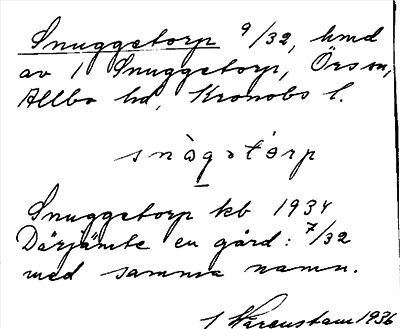 Snuggetorp 9/32, hmd
av 1 Snuggetorp, Örs sn,
Allbo hd, Kronobs l.
snàgәtórp
Snuggetorp kb 1934
Därjämte en gård: 7/32
med samma namn.
1936